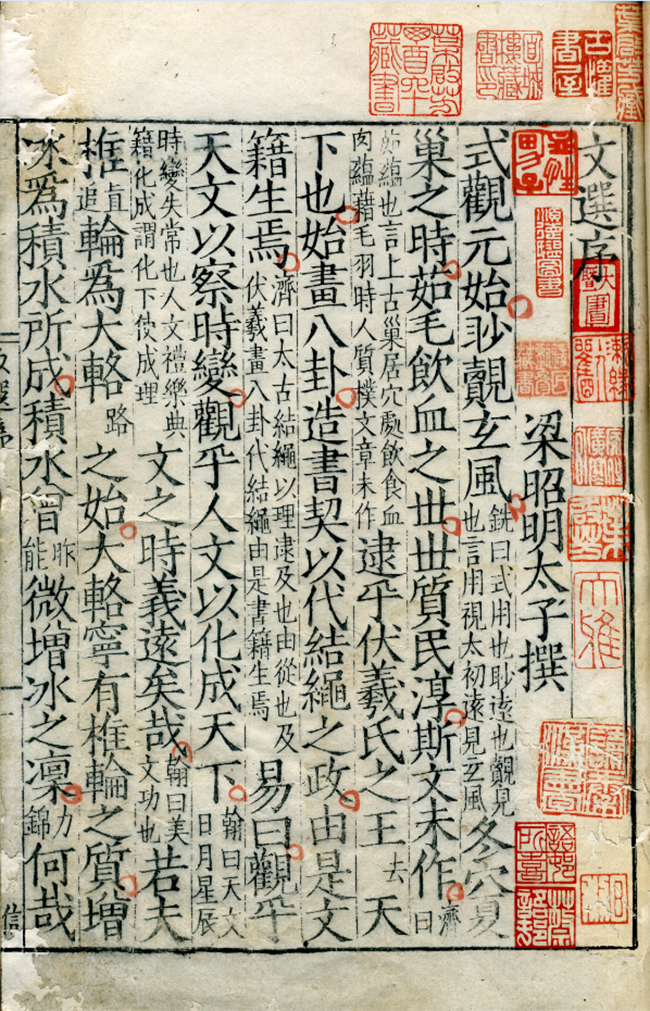 文選序
梁昭明太子撰
式觀元始眇覿玄風銑曰式用也眇遠也覿見也言用視太初遠見玄風冬穴夏
巢之時茹毛飲血之世世質民淳斯文未作濟曰
茹蘊也言上古巢居穴處飲食血肉蘊藉毛羽時人質撲文章未作逮乎伏羲氏之王去天
下也始畫八卦造書契以代結繩之政由是文
籍生焉濟曰太古結繩以理逮及也由從也及伏羲畫八卦代結繩由是書籍生焉易曰觀乎
天文以察時變觀乎人文以化成天下翰曰天文日月星辰
時變失常也人文禮樂典籍化成謂化下使成理文之時義遠矣哉翰曰美文功也若夫
椎直追輪爲大輅路之始大輅寧有椎輪之質增
冰爲積水所成積水曾昨能微增冰之凜力錦何哉
信
大雅